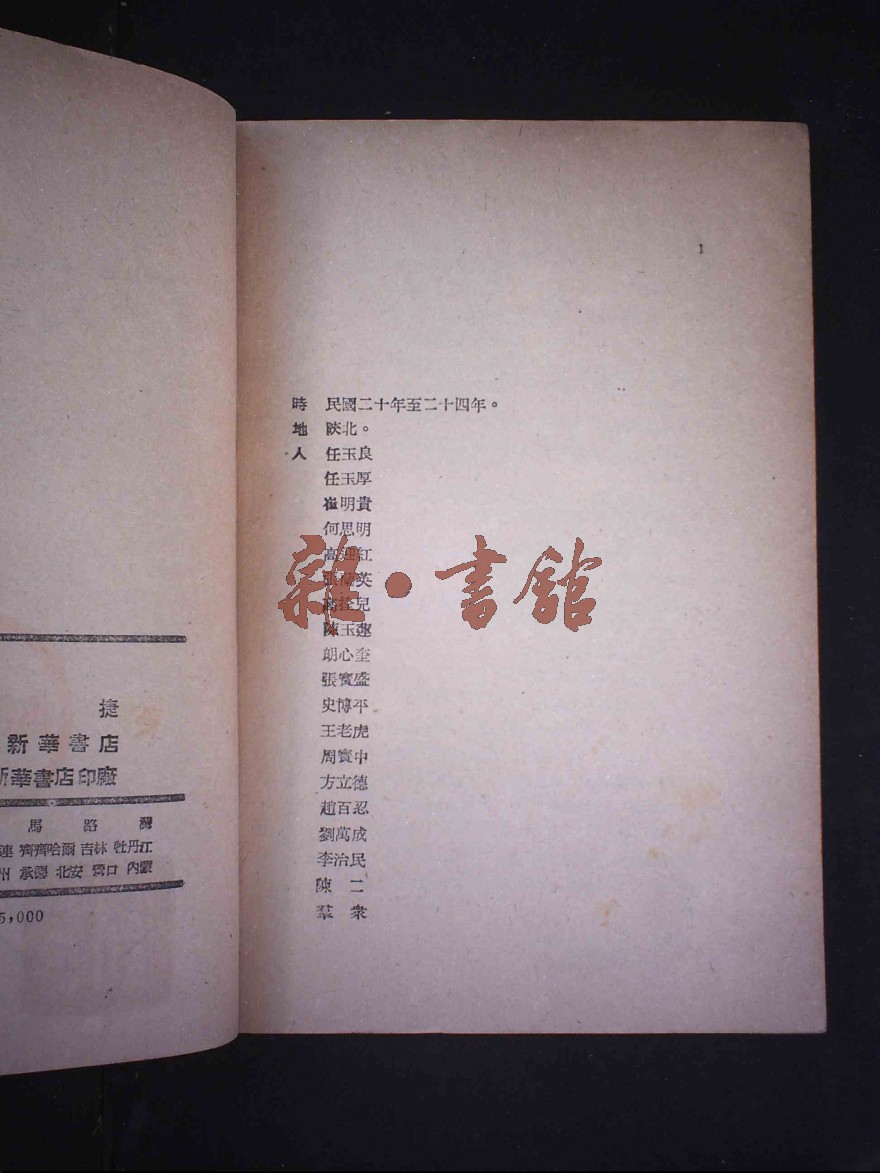 捷
新華書店
新華書店印廠
馬路灣
連 齊齊哈爾 吉林 牡丹江
州 承德 北安 營口 內蒙
5,000
1
時 民國二十年至二十四年。
地 陝北。
人 任玉良
任玉厚
崔明貴
何思明
高迎紅
張蘭英
高拴兒
陳玉蓮
朗心奎
張寳盛
史博平
王老虎
周寳中
方立德
趙百忍
劉萬成
李治民
陳二
羣衆
雜·書館